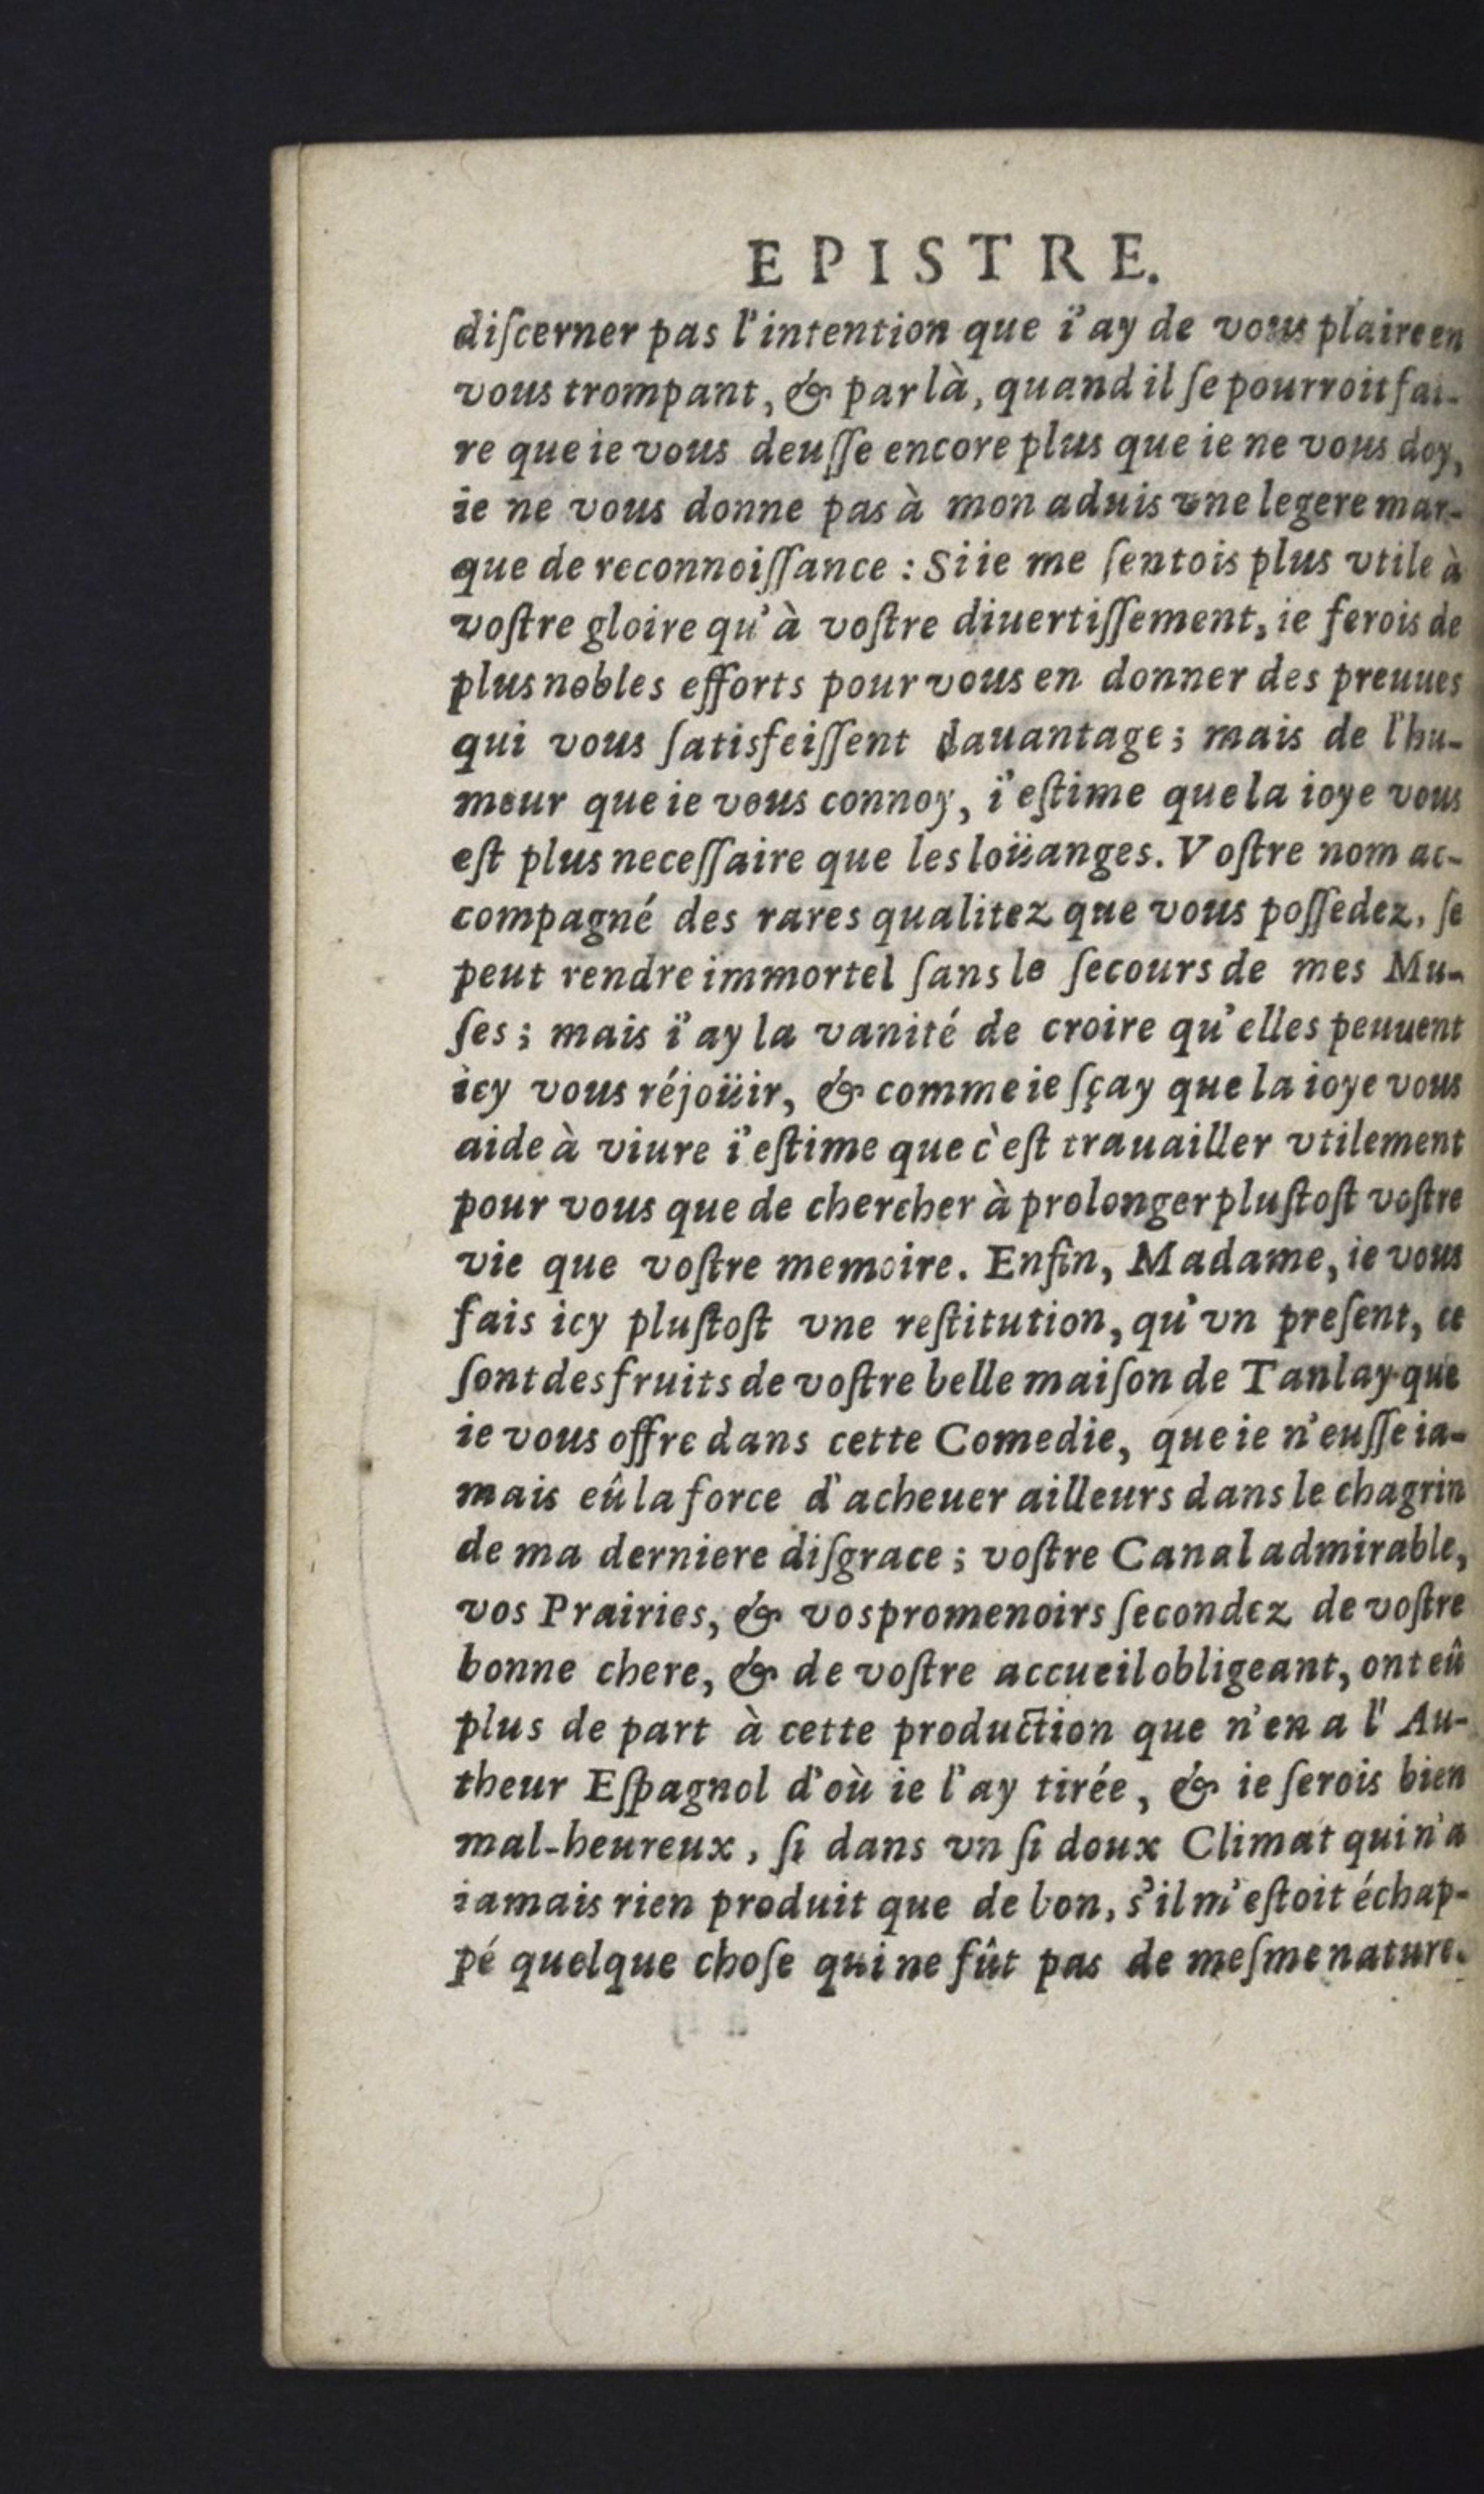 EPISTRE.
diſcerner pas l'intention que i'ay de vous plaire en
vous trompant, & par là, quand il ſe pourroit fai-
re que ie vous deuſſe encore plus que ie ne vous doy,
ie ne vous donne pas à mon aduis vne legere mar-
que de reconnoiſſance : Si ie me ſentois plus vtile à
voſtre gloire qu'à voſtre diuertiſſement, ie ferois de
plus nobles efforts pour vous en donner des preuues
qui vous ſatisfeiſſent dauantage; mais de l'hu-
meur que ie vous connoy, i'eſtime que la ioye vous
eſt plus neceſſaire que les loüanges. Voſtre nom ac-
compagné des rares qualitez que vous poſſedez, ſe
peut rendre immortel ſans le ſecours de mes Mu-
ſes; mais i'ay la vanité de croire qu'elles peuuent
icy vous réjoüir, & comme ie ſçay que la ioye vous
aide à viure i'eſtime que c'eſt trauailler vtilement
pour vous que de chercher à prolonger pluſtoſt voſtre
vie que voſtre memoire. Enfin, Madame, ie vous
fais icy pluſtoſt vne reſtitution, qu'vn preſent, ce
ſont des fruits de voſtre belle maiſon de Tanlay que
ie vous offre dans cette Comedie, que ie n'euſſe ia-
mais eû la force d'acheuer ailleurs dans le chagrin
de ma derniere diſgrace; voſtre Canal admirable,
vos Prairies, & vos promenoirs ſecondez de voſtre
bonne chere, & de voſtre accueil obligeant, ont eû
plus de part à cette production que n'en a l'Au-
theur Eſpagnol d'où ie l'ay tirée, & ie ſerois bien
mal-heureux, ſi dans vn ſi doux Climat qui n'a
iamais rien produit que de bon, s'il m'eſtoit échap-
pé quelque choſe qui ne fût pas de meſme nature.